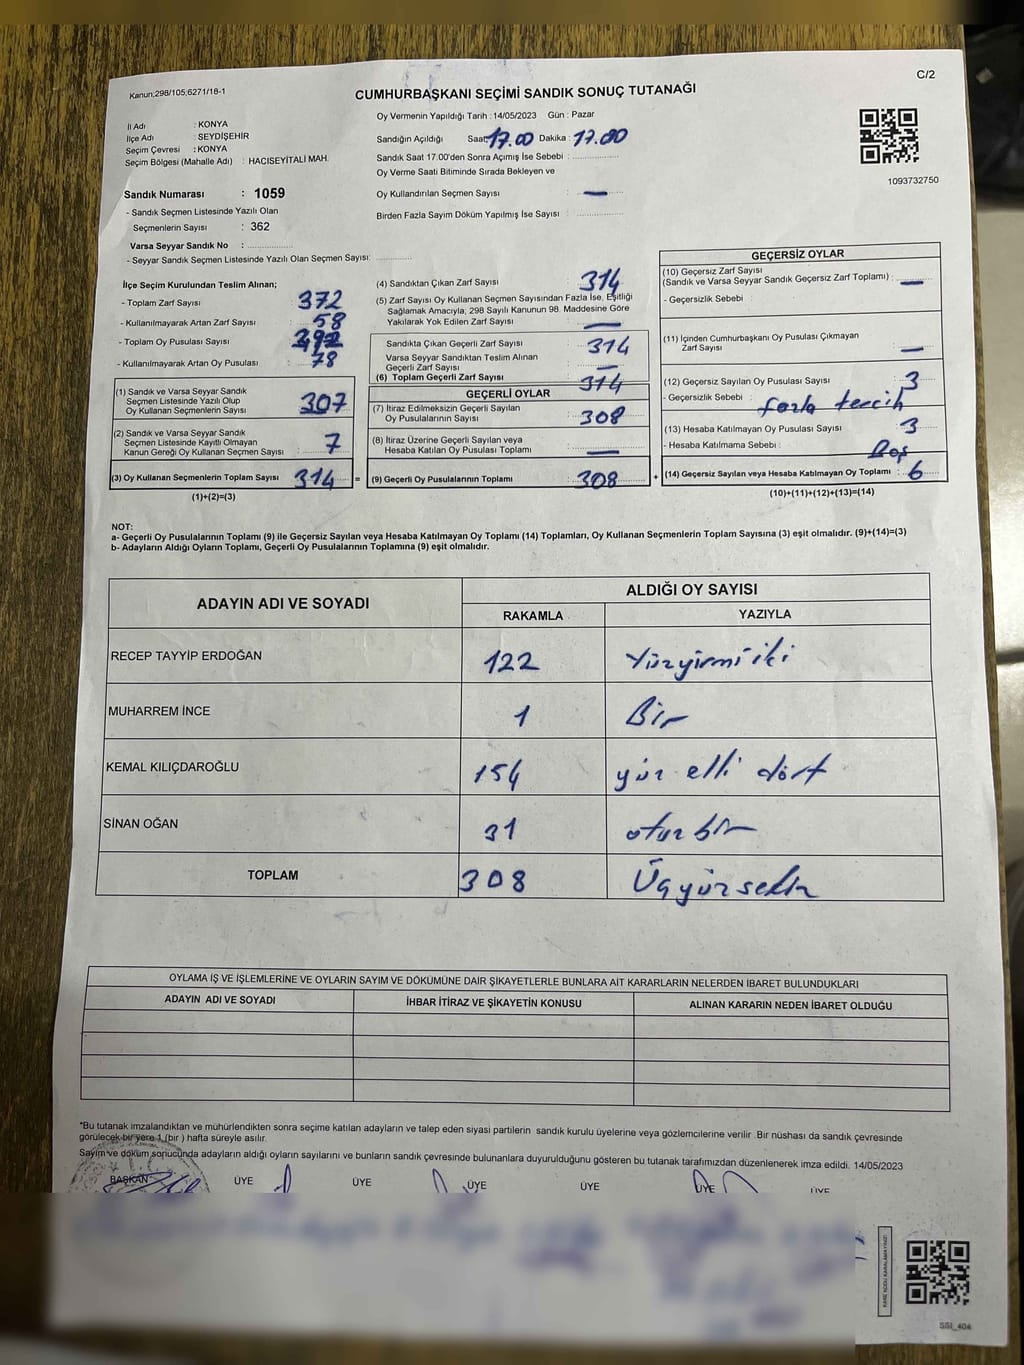 C/2
Kanun;298/105;6271/18-1
CUMHURBAŞKANI SEÇİMİ SANDIK SONUÇ TUTANAĞI
İl Adı : KONYA
İlçe Adı : SEYDİŞEHİR
Seçim Çevresi : KONYA
Seçim Bölgesi (Mahalle Adı) : HACISEYİTALİ MAH.
Oy Vermenin Yapıldığı Tarih : 14/05/2023 Gün : Pazar
Sandığın Açıldığı Saat: 17.00 Dakika : 17.00
Sandık Saat 17.00'den Sonra Açımış İse Sebebi :
Oy Verme Saati Bitiminde Sırada Bekleyen ve
Oy Kullandırılan Seçmen Sayısı : —
Birden Fazla Sayım Döküm Yapılmış İse Sayısı :
1093732750
Sandık Numarası : 1059
- Sandık Seçmen Listesinde Yazılı Olan
Seçmenlerin Sayısı : 362
Varsa Seyyar Sandık No :
- Seyyar Sandık Seçmen Listesinde Yazılı Olan Seçmen Sayısı:
İlçe Seçim Kurulundan Teslim Alınan;
- Toplam Zarf Sayısı : 372
- Kullanılmayarak Artan Zarf Sayısı : 58
- Toplam Oy Pusulası Sayısı :
- Kullanılmayarak Artan Oy Pusulası : 78
(1) Sandık ve Varsa Seyyar Sandık
Seçmen Listesinde Yazılı Olup
Oy Kullanan Seçmenlerin Sayısı : 307
(2) Sandık ve Varsa Seyyar Sandık
Seçmen Listesinde Kayıtlı Olmayan
Kanun Gereği Oy Kullanan Seçmen Sayısı : 7
(3) Oy Kullanan Seçmenlerin Toplam Sayısı : 314 =
(1)+(2)=(3)
(4) Sandıktan Çıkan Zarf Sayısı : 314
(5) Zarf Sayısı Oy Kullanan Seçmen Sayısından Fazla İse, Eşitliği
Sağlamak Amacıyla, 298 Sayılı Kanunun 98. Maddesine Göre
Yakılarak Yok Edilen Zarf Sayısı : —
Sandıkta Çıkan Geçerli Zarf Sayısı : 314
Varsa Seyyar Sandıktan Teslim Alınan
Geçerli Zarf Sayısı : —
(6) Toplam Geçerli Zarf Sayısı : 314
GEÇERLİ OYLAR
(7) İtiraz Edilmeksizin Geçerli Sayılan
Oy Pusulalarının Sayısı : 308
(8) İtiraz Üzerine Geçerli Sayılan veya
Hesaba Katılan Oy Pusulası Toplamı : —
(9) Geçerli Oy Pusulalarının Toplamı : 308 +
GEÇERSİZ OYLAR
(10) Geçersiz Zarf Sayısı
(Sandık ve Varsa Seyyar Sandık Geçersiz Zarf Toplamı) : —
- Geçersizlik Sebebi
(11) İçinden Cumhurbaşkanı Oy Pusulası Çıkmayan
Zarf Sayısı : —
(12) Geçersiz Sayılan Oy Pusulası Sayısı : 3
- Geçersizlik Sebebi : fazla tercih
(13) Hesaba Katılmayan Oy Pusulası Sayısı : 3
- Hesaba Katılmama Sebebi : Boş
(14) Geçersiz Sayılan veya Hesaba Katılmayan Oy Toplamı : 6
(10)+(11)+(12)+(13)=(14)
NOT:
a- Geçerli Oy Pusulalarının Toplamı (9) ile Geçersiz Sayılan veya Hesaba Katılmayan Oy Toplamı (14) Toplamları, Oy Kullanan Seçmenlerin Toplam Sayısına (3) eşit olmalıdır. (9)+(14)=(3)
b- Adayların Aldığı Oyların Toplamı, Geçerli Oy Pusulalarının Toplamına (9) eşit olmalıdır.
ADAYIN ADI VE SOYADI ALDIĞI OY SAYISI
RAKAMLA YAZIYLA
RECEP TAYYİP ERDOĞAN 122 Yüzyirmi iki
MUHARREM İNCE 1 Bir
KEMAL KILIÇDAROĞLU 154 yüz elli dört
SİNAN OĞAN 31 otuz bir
TOPLAM 308 Üçyüz sekiz
OYLAMA İŞ VE İŞLEMLERİNE VE OYLARIN SAYIM VE DÖKÜMÜNE DAİR ŞİKAYETLERLE BUNLARA AİT KARARLARIN NELERDEN İBARET BULUNDUKLARI
ADAYIN ADI VE SOYADI İHBAR İTİRAZ VE ŞİKAYETİN KONUSU ALINAN KARARIN NEDEN İBARET OLDUĞU
*Bu tutanak imzalandıktan ve mühürlendikten sonra seçime katılan adayların ve talep eden siyasi partilerin sandık kurulu üyelerine veya gözlemcilerine verilir. Bir nüshası da sandık çevresinde
görülecek bir yere 1 (bir ) hafta süreyle asılır.
Sayım ve döküm sonucunda adayların aldığı oyların sayılarını ve bunların sandık çevresinde bulunanlara duyurulduğunu gösteren bu tutanak tarafımızdan düzenlenerek imza edildi. 14/05/2023
BAŞKAN ÜYE ÜYE ÜYE ÜYE ÜYE ÜYE
KARE KODU KARALAMAYINIZ!
SSI_404